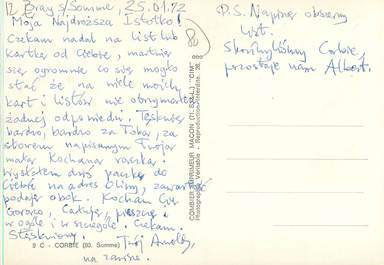 12 Bray s/Somme, 25.01.72
Moja Najdroższa Istotko!
Czekam nadal na list lub
kartkę od Ciebie, martwię
się ogromnie co się mogło
stać że na wiele moich
kart i listów nie otrzymałem
żadnej odpowiedzi. Tęsknię
bardzo, bardzo za Tobą, za
słowem napisanym Twoją
małą Kochaną rączką.
Wysłałem dziś paczkę do
Ciebie na adres Olimy, zawartość
podaję obok. Kocham Cię
Gorąco, Całuję, pieszczę
w ogóle i w szczególe. Czekam.
Stęskniony
Twój Arnold,
na zawsze.
9 C - CORBIE (80. Somme)
COMBIER IMPRIMEUR MACON (71. S.-&-L.) "CIM"
Photographie Véritable - Reproduction interdite.
P.S. Napiszę obszerny
list.
Skończyliśmy Corbie,
pozostaje nam Albert.